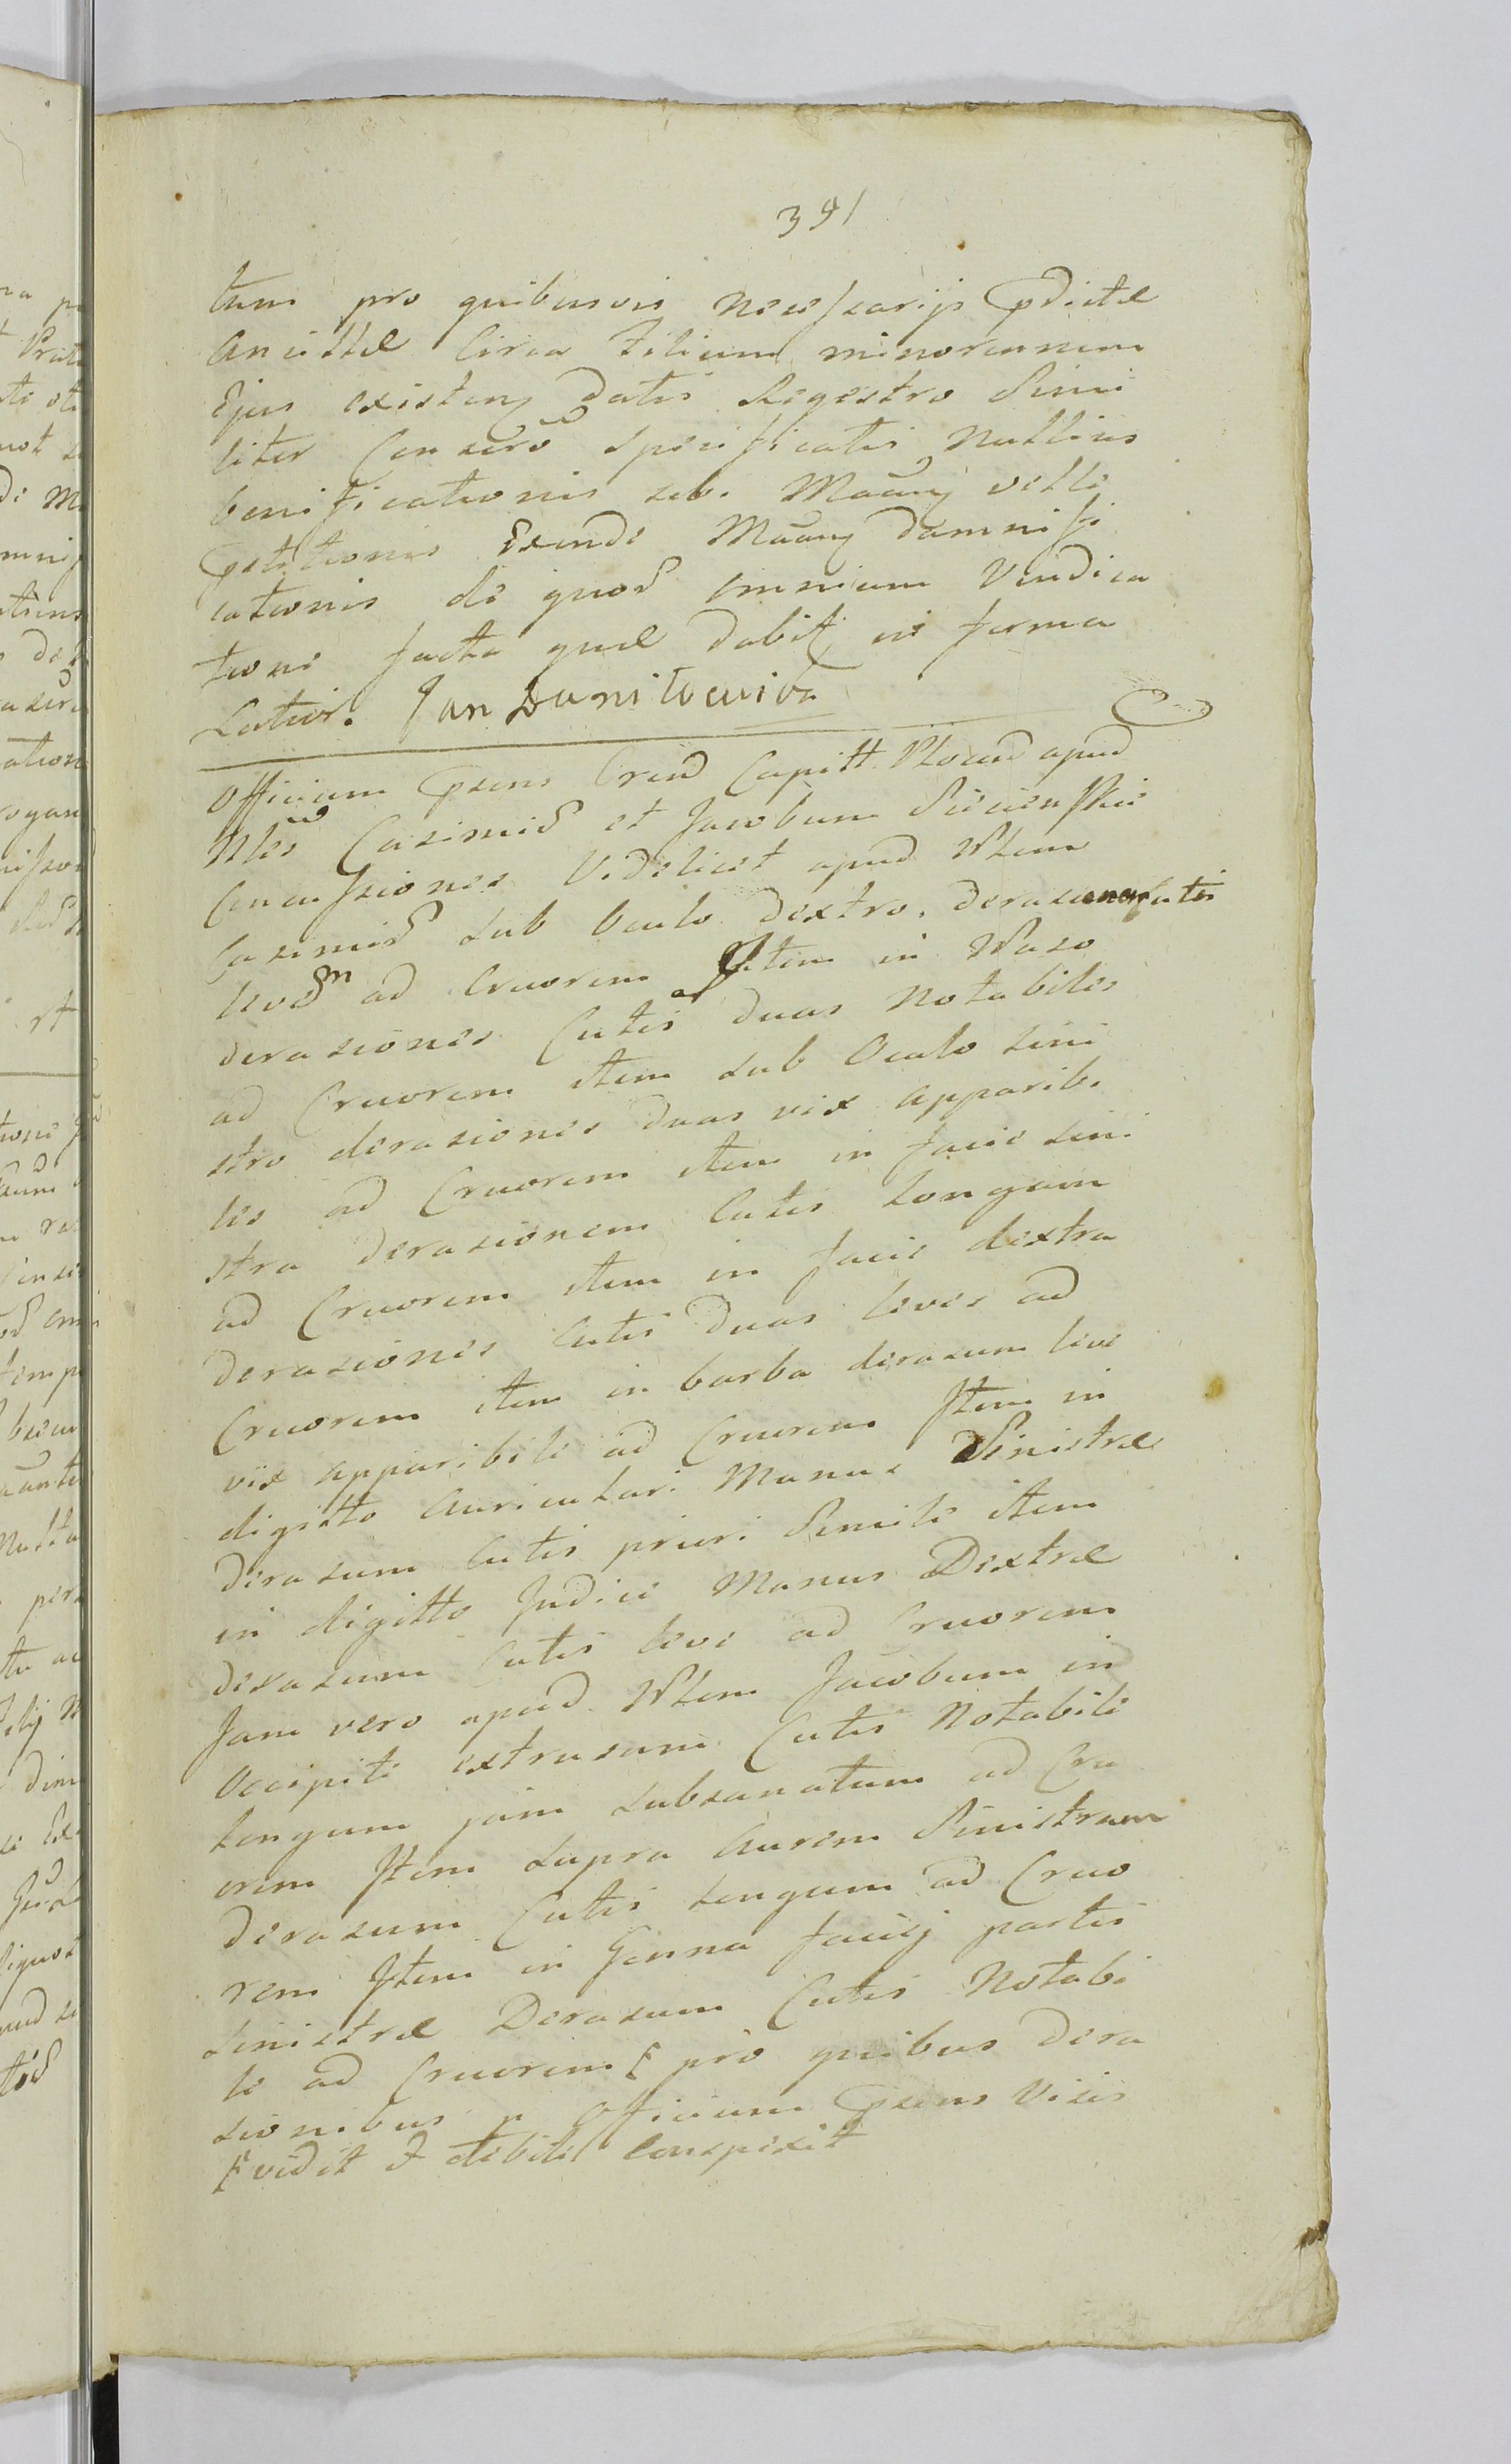 391
tum pro quibusvis necessarijs pdictæ
Ancillæ Circa Filium minorennem
Ejus existen datis Regestro Simi
liter Conser̃o specificatis Nullius
bonificationis sibi Mãan velle
petitionis Exinde Mãan damnifi
cationis de quod omnium Vindica
tione facta quæ dabit in forma
Latior. Jan
Officium Psens Cren̄d Capitt Plocen̄ apud
Nles Casimir̄ et Jacobum
Concussiones Videlicet apud Nlem
Casimir̄ sub Oculo dextro, derasum Cutis
ad Cruorem Item in Naso
derasiones Cutis duas Notabiles
ad Cruorem item sub Oculo Sini
stro derasiones duas vix apparibi
les ad Cruorem item in facie sini
stra derasionem Cutis Longam
ad Cruorem item in facie dextra
derasiones Cutis duas leves ad
Cruorem item in barba derasum leve
vix apparibile ad Cruorem Item in
digitto Auriculari Manus Sinistræ
derasum Cutis priori Simile item
in digitto Indice Manus Dextræ
derasum Cutis leve ad Cruorem
Jam vero apud Nlem Jacobum in
Occipite extrusum Cutis Notabile
Longum jam subsanatum ad Cru
orem Item supra Aurem Sinistram
derasum Cutis longum ad Cruo
rem Item in Genna faciej partis
sinistræ Derasum Cutis Notabi
le ad Cruorem pro quibus dera
sionibus p Officium Psens Visis
vidit et conspexit